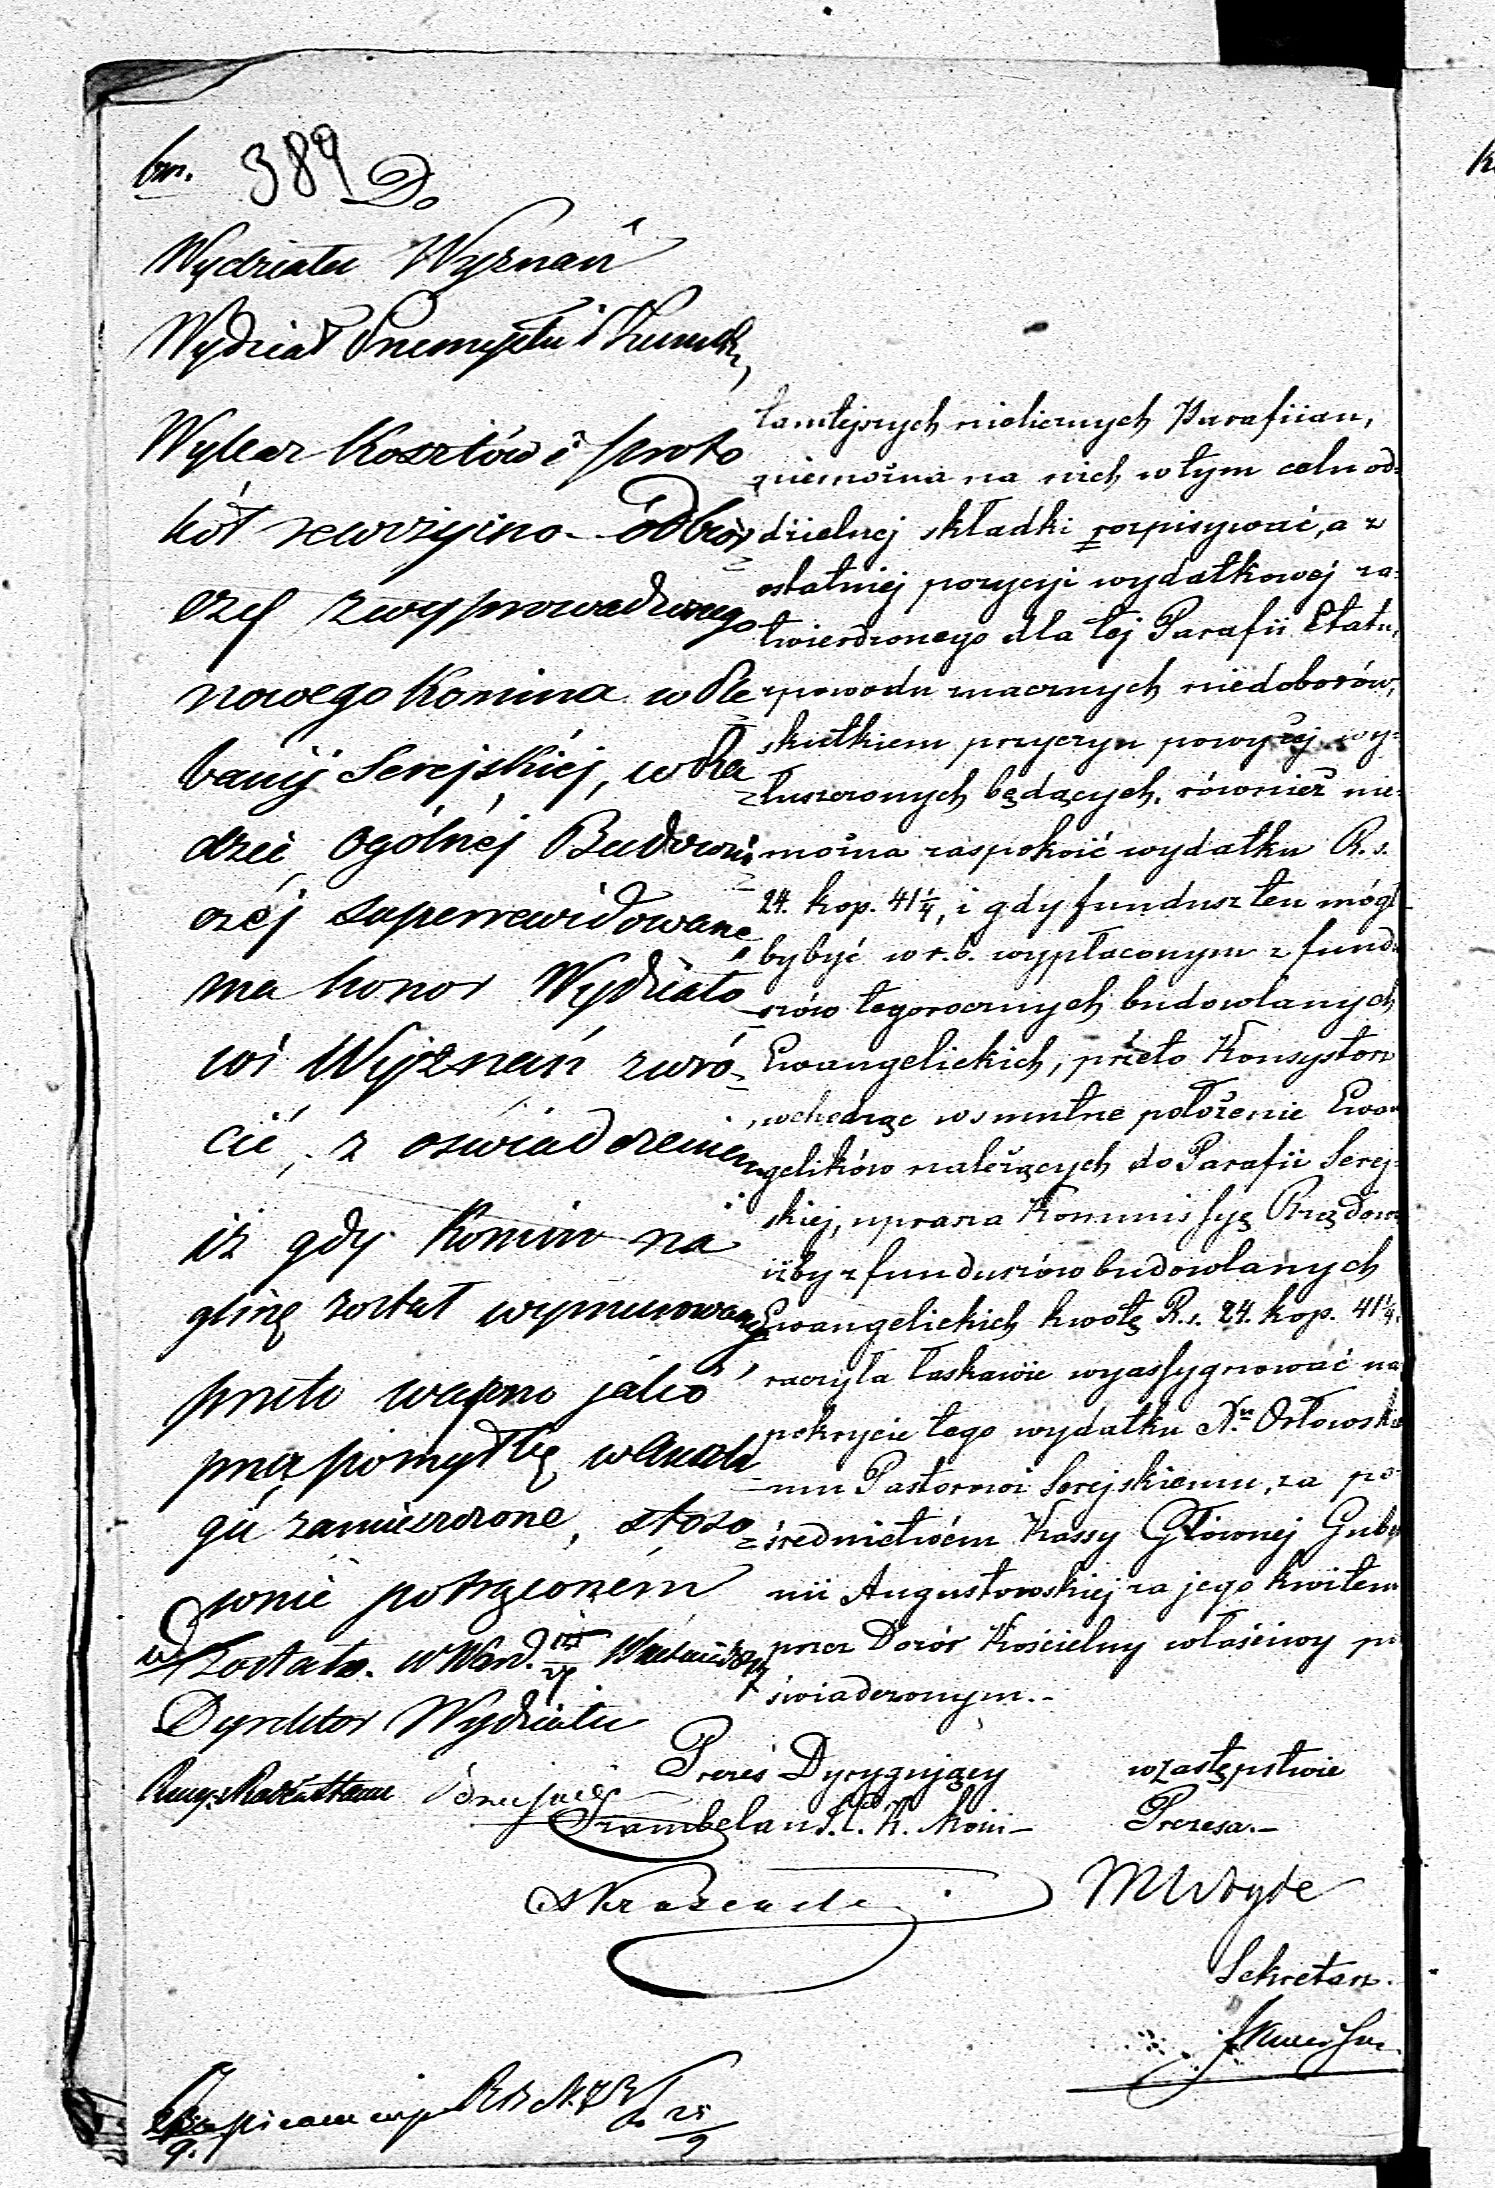 389 Do
Wydziału Wyznań
Wydział Przemysłu i Kunszt.
Wykaz kosztów i proto
kół rewizyjno-odbior
czy z wyprowadzonego
nowego komina w Ple
banij Serejskiéj, w Ra
dzie Ogólnéj Budowni
czéj superrewidowane,
ma honor Wydziało
wi Wyznań zwró
cić, z oświadczeniem
iż gdy komin na
glinę został wymurowany
przeto wapno jako
przez pomyłkę w
zamieszczone, stoso
wnie potrąconém
zostało. w Warsz.
Dyrektor Wydziału
tamtejszych nielicznych Parafiian,
niemożna na nich w tym celu od=
dzielnej składki rozpisywać, a z
ostatniej pozycyi wydatkowej za=
twierdzonego dla tej Parafii Etatu,
z powodu znacznych niedoborów,
skutkiem przyczyn powyżej wy=
łuszczonych będących, również nie=
można zaspokoić wydatku R. s.
24. kop. 41¼, i gdy fundusz ten mógł
by być w r. b. wypłaconym z fundu
szów tegorocznych budowlanych
Ewangelickich, przeto Konsystorz
wchodząc w smutne położenie Ewan
gelików należących do Parafii Serej=
skiej, uprasza Kommissyę Rządow
iżby z funduszów budowlanych
Ewangelickich kwotę R. s. 24. kop. 41¼.
raczyła łaskawie wyassygnować na
pokrycie tego wydatku Xu Orłowskie
mu Pastorowi Serejskiemu, za po=
średnictwem Kassy Głównej Guber
nii Augustowskiej za jego kwitem
przez Dozór Kościelny właściwy po
świadczonym.-
Prezes Dyrygujący w zastępstwie
Szambelan Prezesa.-
Sekretarz.